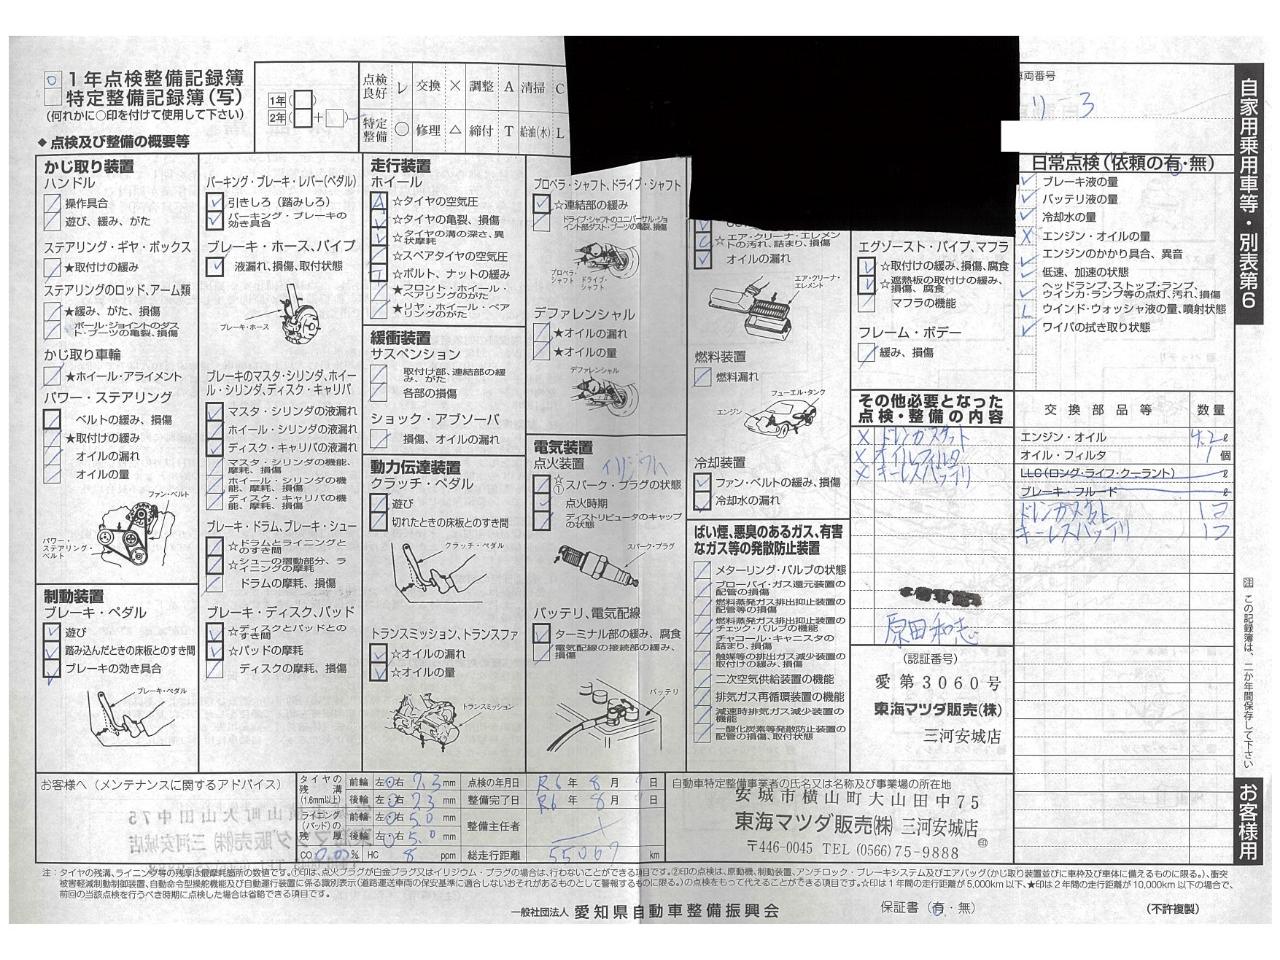 1年点検整備記録簿
特定整備記録簿(写)
(何れかに○印を付けて使用して下さい)
◆点検及び整備の概要等
1年( )
2年( + )
点検良好 レ 交換 × 調整 A 清掃 C
特定整備 ○ 修理 △ 締付 T 給油(水) L
車両番号
自家用乗用車等・別表第6
かじ取り装置
ハンドル
操作具合
遊び、緩み、がた
ステアリング・ギヤ・ボックス
★取付けの緩み
ステアリングのロッド、アーム類
★緩み、がた、損傷
ボール・ジョイントのダスト・ブーツの亀裂、損傷
かじ取り車輪
★ホイール・アライメント
パワー・ステアリング
ベルトの緩み、損傷
★取付けの緩み
オイルの漏れ
オイルの量
ファン・ベルト
パワー・ステアリング・ベルト
制動装置
ブレーキ・ペダル
遊び
踏み込んだときの床板とのすき間
ブレーキの効き具合
ブレーキ・ペダル
パーキング・ブレーキ・レバー(ペダル)
引きしろ(踏みしろ)
パーキング・ブレーキの効き具合
ブレーキ・ホース、パイプ
液漏れ、損傷、取付状態
ブレーキ・ホース
ブレーキのマスタ・シリンダ、ホイール・シリンダ、ディスク・キャリパ
マスタ・シリンダの液漏れ
ホイール・シリンダの液漏れ
ディスク・キャリパの液漏れ
マスタ・シリンダの機能、摩耗、損傷
ホイール・シリンダの機能、摩耗、損傷
ディスク・キャリパの機能、摩耗、損傷
ブレーキ・ドラム、ブレーキ・シュー
☆ドラムとライニングとのすき間
☆シューの摺動部分、ライニングの摩耗
ドラムの摩耗、損傷
ブレーキ・ディスク、パッド
☆ディスクとパッドとのすき間
☆パッドの摩耗
ディスクの摩耗、損傷
走行装置
ホイール
☆タイヤの空気圧
☆タイヤの亀裂、損傷
☆タイヤの溝の深さ、異状摩耗
☆スペアタイヤの空気圧
☆ボルト、ナットの緩み
★フロント・ホイール・ベアリングのがた
★リヤ・ホイール・ベアリングのがた
緩衝装置
サスペンション
取付け部、連結部の緩み、がた
各部の損傷
ショック・アブソーバ
損傷、オイルの漏れ
動力伝達装置
クラッチ・ペダル
遊び
切れたときの床板とのすき間
クラッチ・ペダル
トランスミッション、トランスファ
☆オイルの漏れ
☆オイルの量
トランスミッション
プロペラ・シャフト、ドライブ・シャフト
☆連結部の緩み
ドライブ・シャフトのユニバーサル・ジョイント部ダスト・ブーツの亀裂、損傷
プロペラ・シャフト
ドライブ・シャフト
デファレンシャル
★オイルの漏れ
★オイルの量
デファレンシャル
電気装置
点火装置 イリジウム
☆① スパーク・プラグの状態
点火時期
ディストリビュータのキャップの状態
スパーク・プラグ
バッテリ、電気配線
ターミナル部の緩み、腐食
電気配線の接続部の緩み、損傷
バッテリ
☆エア・クリーナ・エレメントの汚れ、詰まり、損傷
オイルの漏れ
エア・クリーナ・エレメント
燃料装置
燃料漏れ
フューエル・タンク
エンジン
冷却装置
ファン・ベルトの緩み、損傷
冷却水の漏れ
ばい煙、悪臭のあるガス、有害なガス等の発散防止装置
メターリング・バルブの状態
ブローバイ・ガス還元装置の配管の損傷
燃料蒸発ガス排出抑止装置の配管等の損傷
燃料蒸発ガス排出抑止装置のチェック・バルブの機能
チャコール・キャニスタの詰まり、損傷
触媒等の排出ガス減少装置の取付けの緩み、損傷
二次空気供給装置の機能
排気ガス再循環装置の機能
減速時排気ガス減少装置の機能
一酸化炭素等発散防止装置の配管の損傷、取付状態
エグゾースト・パイプ、マフラ
☆取付けの緩み、損傷、腐食
☆遮熱板の取付けの緩み、損傷、腐食
マフラの機能
フレーム・ボデー
緩み、損傷
その他必要となった点検・整備の内容
× ドレンガスケット
× オイルフィルタ
× キーレスバッテリ
原田和志
(認証番号)
愛第3060号
東海マツダ販売(株)
三河安城店
日常点検(依頼の有・無)
ブレーキ液の量
バッテリ液の量
冷却水の量
エンジン・オイルの量
エンジンのかかり具合、異音
低速、加速の状態
ヘッドランプ、ストップ・ランプ、ウインカ・ランプ等の点灯、汚れ、損傷
ウインド・ウォッシャ液の量、噴射状態
ワイパの拭き取り状態
交換部品等 数量
エンジン・オイル 4.2ℓ
オイル・フィルタ 1個
LLC(ロング・ライフ・クーラント) ℓ
ブレーキ・フルード ℓ
ドレンガスケット 1コ
キーレスバッテリ 1コ
注 この記録簿は、二か年間保存して下さい
お客様用
お客様へ(メンテナンスに関するアドバイス)
タイヤの残溝(1.6mm以上) 前輪 左・右 7.3 mm
後輪 左・右 7.3 mm
ライニング(パッド)の残厚 前輪 左・右 5.0 mm
後輪 左・右 5.0 mm
CO 0.00 % HC 8 ppm
点検の年月日 R6年8月 日
整備完了日 R6年8月 日
整備主任者
総走行距離 55067 km
自動車特定整備事業者の氏名又は名称及び事業場の所在地
安城市横山町大山田中75
東海マツダ販売(株) 三河安城店
〒446-0045 TEL (0566)75-9888 ㊞
注:タイヤの残溝、ライニング等の残厚は最摩耗箇所の数値です。①印は、点火プラグが白金プラグ又はイリジウム・プラグの場合は、行わないことができる項目です。②印の点検は、原動機、制動装置、アンチロック・ブレーキシステム及びエアバッグ(かじ取り装置並びに車枠及び車体に備えるものに限る。)、衝突
被害軽減制動制御装置、自動命令型操舵機能及び自動運行装置に係る識別表示(道路運送車両の保安基準に適合しないおそれがあるものとして警報するものに限る。)の点検をもって代えることができる項目です。☆印は1年間の走行距離が5,000km以下、★印は2年間の走行距離が10,000km以下の場合で、
前回の当該点検を行うべき時期に点検した場合は省略できる項目です。
一般社団法人 愛知県自動車整備振興会
保証書(有・無)
(不許複製)